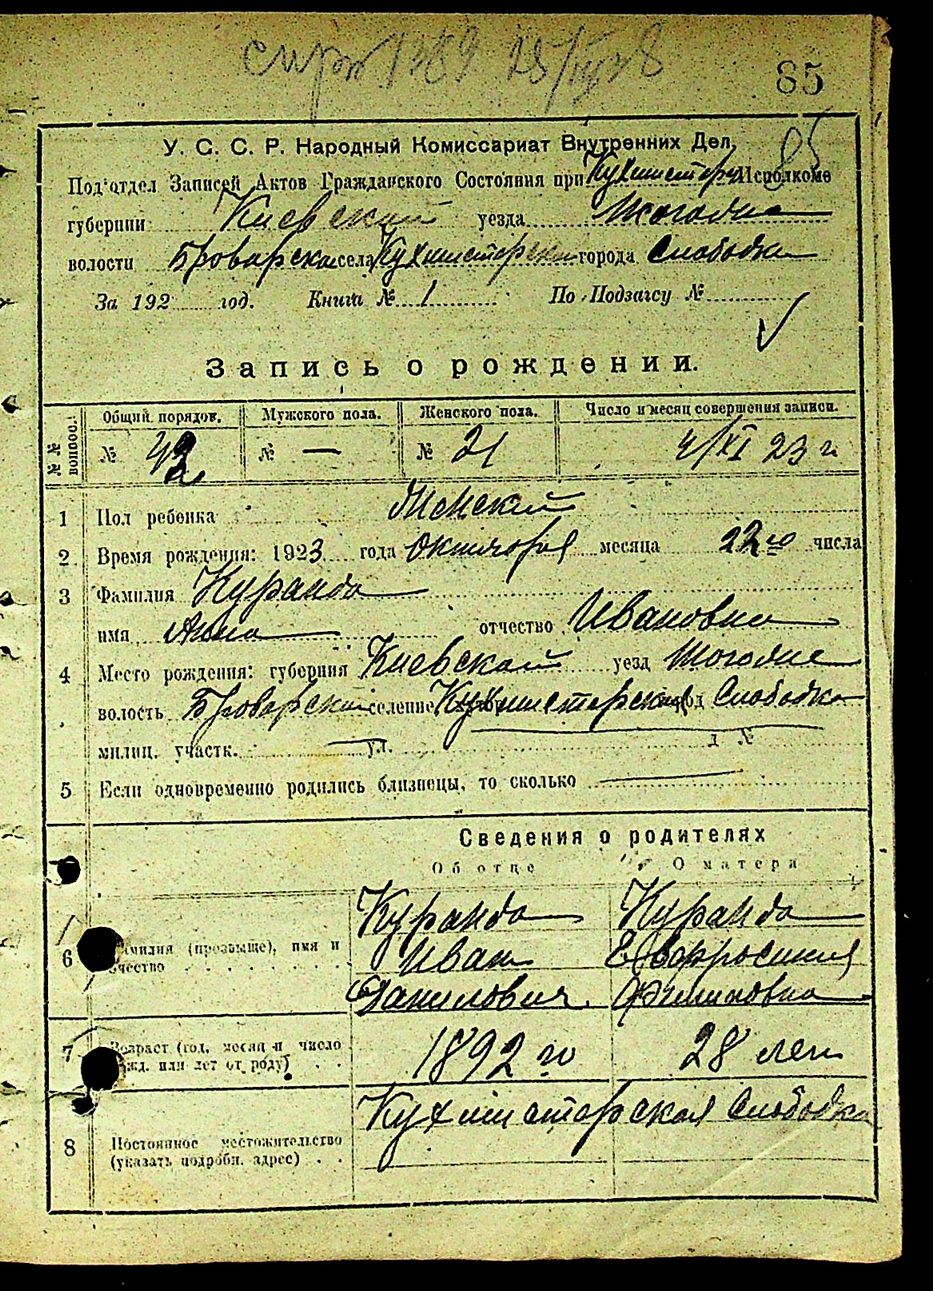 85
85
У. С. С. Р. Народный Комиссариат Внутренних Дел.
Подотдел Записей Актов Гражданского Состояния при Кухмистерск Исполкоме
губернии Киевской уезда тогоже
волости Броварской села Кухмистерской города Слободки
За 192 год. Книга № 1 По Подзагсу №
Запись о рождении.
№№ вопрос. Общий порядок. Мужского пола. Женского пола. Число и месяц совершения записи.
№ 42 № — № 21 4/XI 23 г
1 Пол ребенка Женский
2 Время рождения: 1923 года Октября месяца 22го числа
3 Фамилия Куранда
имя Анна отчество Ивановна
4 Место рождения: губерния Киевской уезд тогоже
волость Броварской селение Кухмистерская Слободка
милиц. участк. ул. д №
5 Если одновременно родились близнецы, то сколько
Сведения о родителях
Об отце О матери
Куранда Куранда
6 Фамилия (прозвыще), имя и отчество Иван Евфросиния
Данилович Филиповна
7 Возраст (год, месяц и число рожд. или лет от роду) 1892 го 28 лет
Кухмистерская Слободка
8 Постоянное местожительство
(указать подробн. адрес)